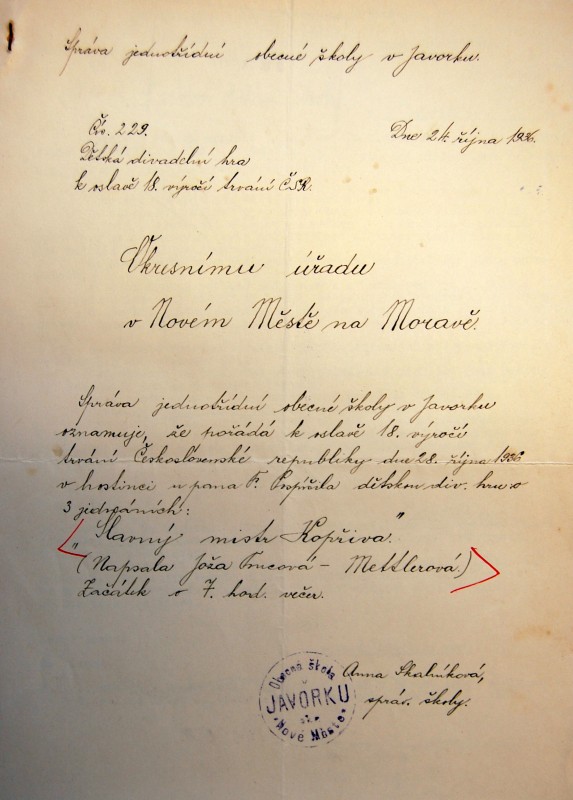 Správa jednotřídní obecné školy v Javorku.
Čís. 229.
Dne 24. října 1936.
Dětská divadelní hra
k oslavě 18. výročí trvání ČSR.
Okresnímu úřadu
v Novém Městě na Moravě.
Správa jednotřídní obecné školy v Javorku
oznamuje, že pořádá k oslavě 18. výročí
trvání Československé republiky dne 28. října 1936
v hostinci u pana F. Pospíšila dětskou div. hru o
3 jednáních:
„Slavný mistr Kopřiva“
(Napsala Jóža Mettlerová.)
Začátek o 7. hod. večer.
Anna Skalníková,
správ. školy.
Obecná škola
v
JAVORKU
Nové Město